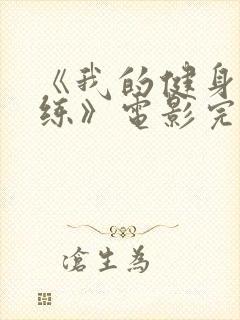 《我的健身
练》电影完
沧生为